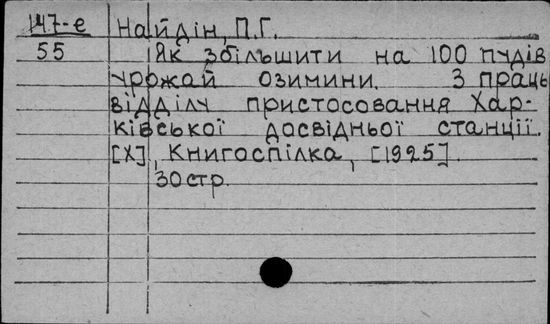 147-е Найдін, П.Г.
55 Як збільшити на 100 пудів
урожай озимини. З праць
відділу пристосовання Хар-
ківської досвідньої станції.
[Х], Книгоспілка, [1925].
30стр.